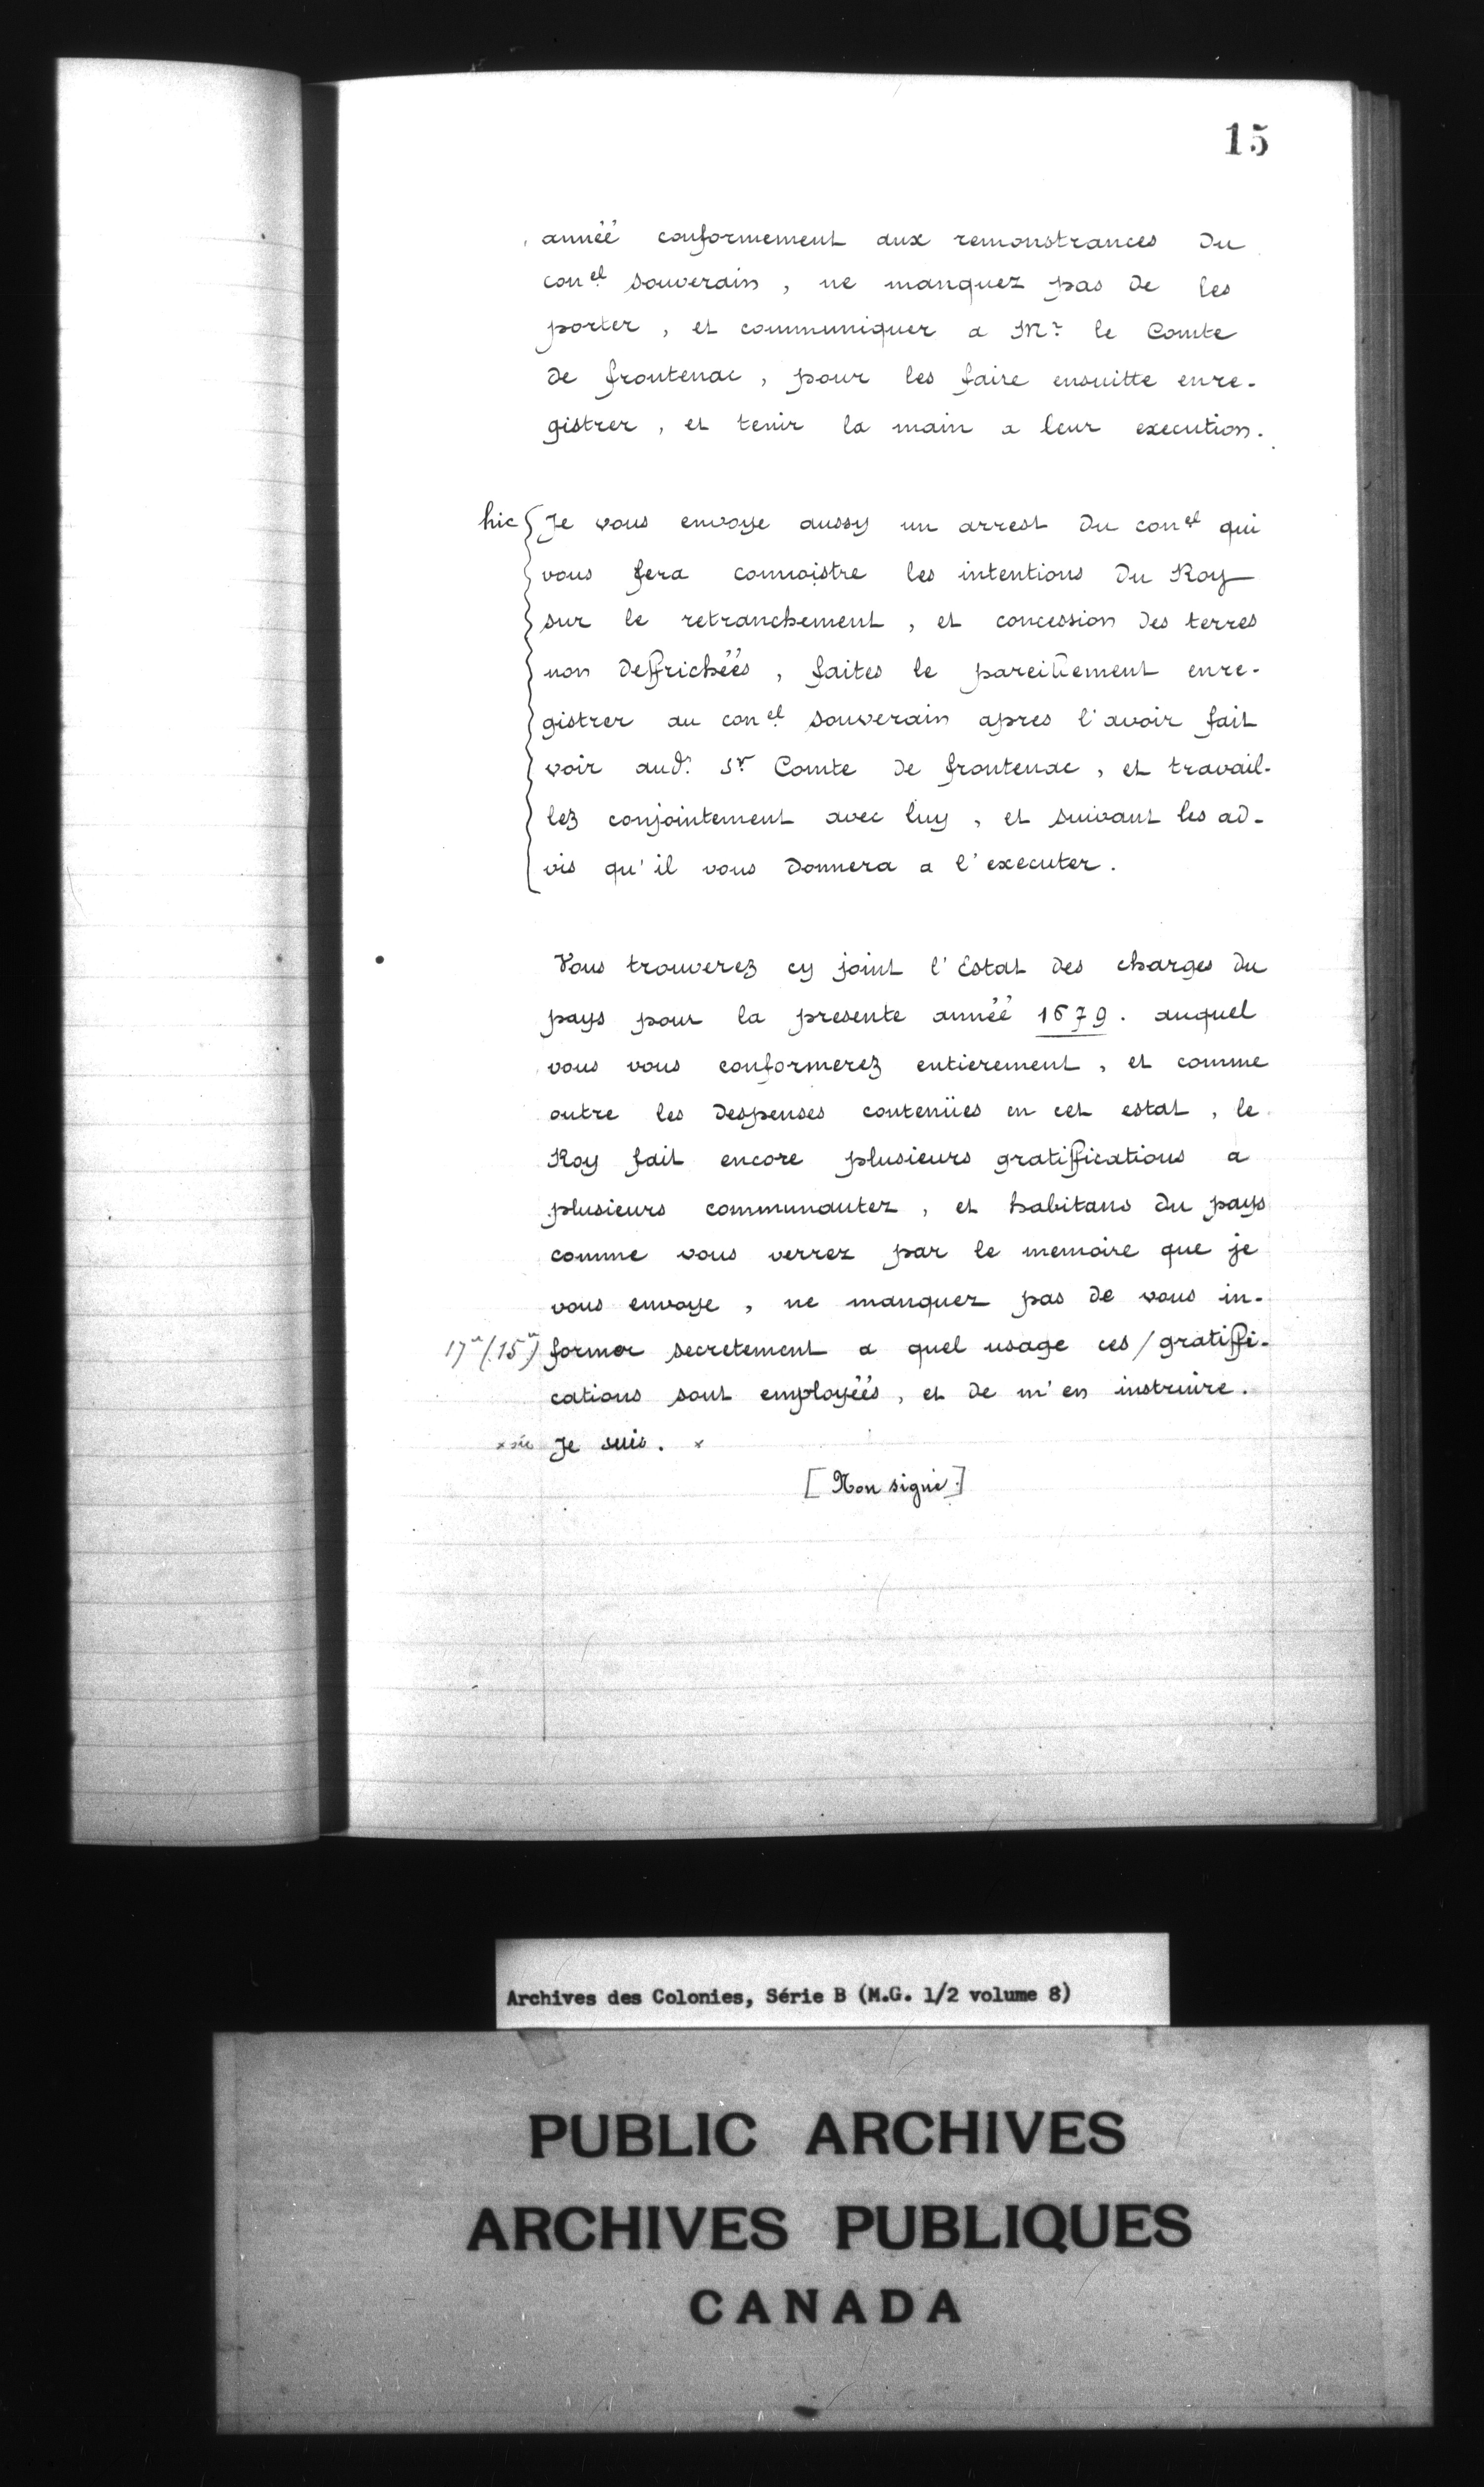 15
année conformement aux remonstrances du
con.el souverain, ne manquez pas de les
porter, et communiquer a Mr. le Comte
de frontenac, pour les faire ensuitte enre-
gistrer, et tenir la main a leur execution.
hic Je vous envoye aussy un arrest du con.el qui
vous fera connoistre les intentions du Roy
sur le retranchement, et concession des terres
non deffrichéés, faites le pareillement enre-
gistrer au con.el souverain apres l'avoir fait
voir aud. Sr Comte de frontenac, et travail-
lez conjointement avec luy, et suivant les ad-
vis qu'il vous donnera a l'executer.
Vous trouverez cy joint l'Estat des charges du
pays pour la presente année 1679. auquel
vous vous conformerez entierement, et comme
outre les despenses contenües en cet estat, le
Roy fait encore plusieurs gratiffications a
plusieurs communautez, et habitans du pays
comme vous verrez par le memoire que je
vous envoye, ne manquez pas de vous in-
17"(15") former secretement a quel usage ces / gratiffi-
cations sont employéés, et de m'en instruire.
Je suis. x
[Non signé.]
Archives des Colonies, Série B (M.G. 1/2 volume 8)
PUBLIC ARCHIVES
ARCHIVES PUBLIQUES
CANADA